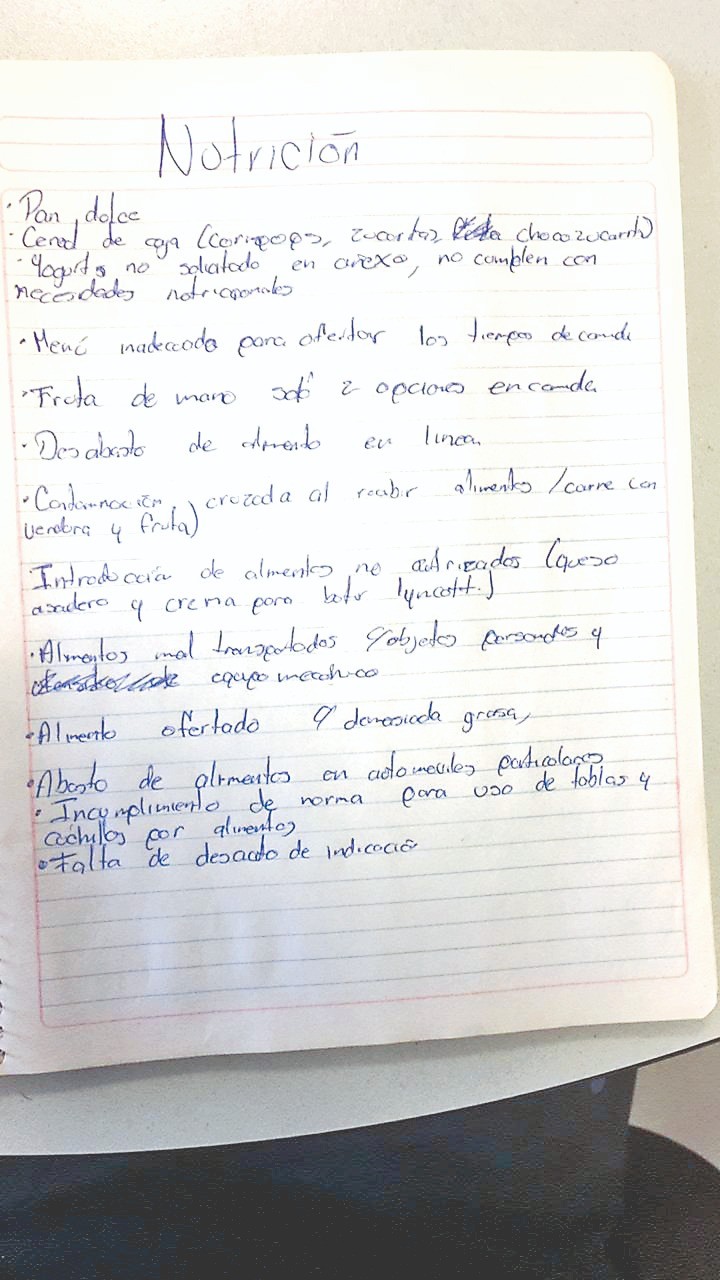 Nutrición
· Pan dulce
· Cereal de caja (corn pops, zucaritas, choco zucarita)
· Yogurts no solicitado en anexo, no cumplen con
necesidades nutricionales
· Menú inadecuado para ofertar los tiempos de comida
· Fruta de mano solo 2 opciones en comida
· Desabasto de alimento en linea
· Contaminación cruzada al recibir alimentos / carne con
verdura y fruta)
Introducción de alimentos no autorizados (queso
asadero y crema para batir lyncott.)
· Alimentos mal transportados objetos personales y
equipo mecanico
· Alimento ofertado demasiada grasa,
· Abasto de alimentos en automoviles particulares
· Incumplimiento de norma para uso de tablas y
cuchillos por alimentos
· Falta de desacato de indicación